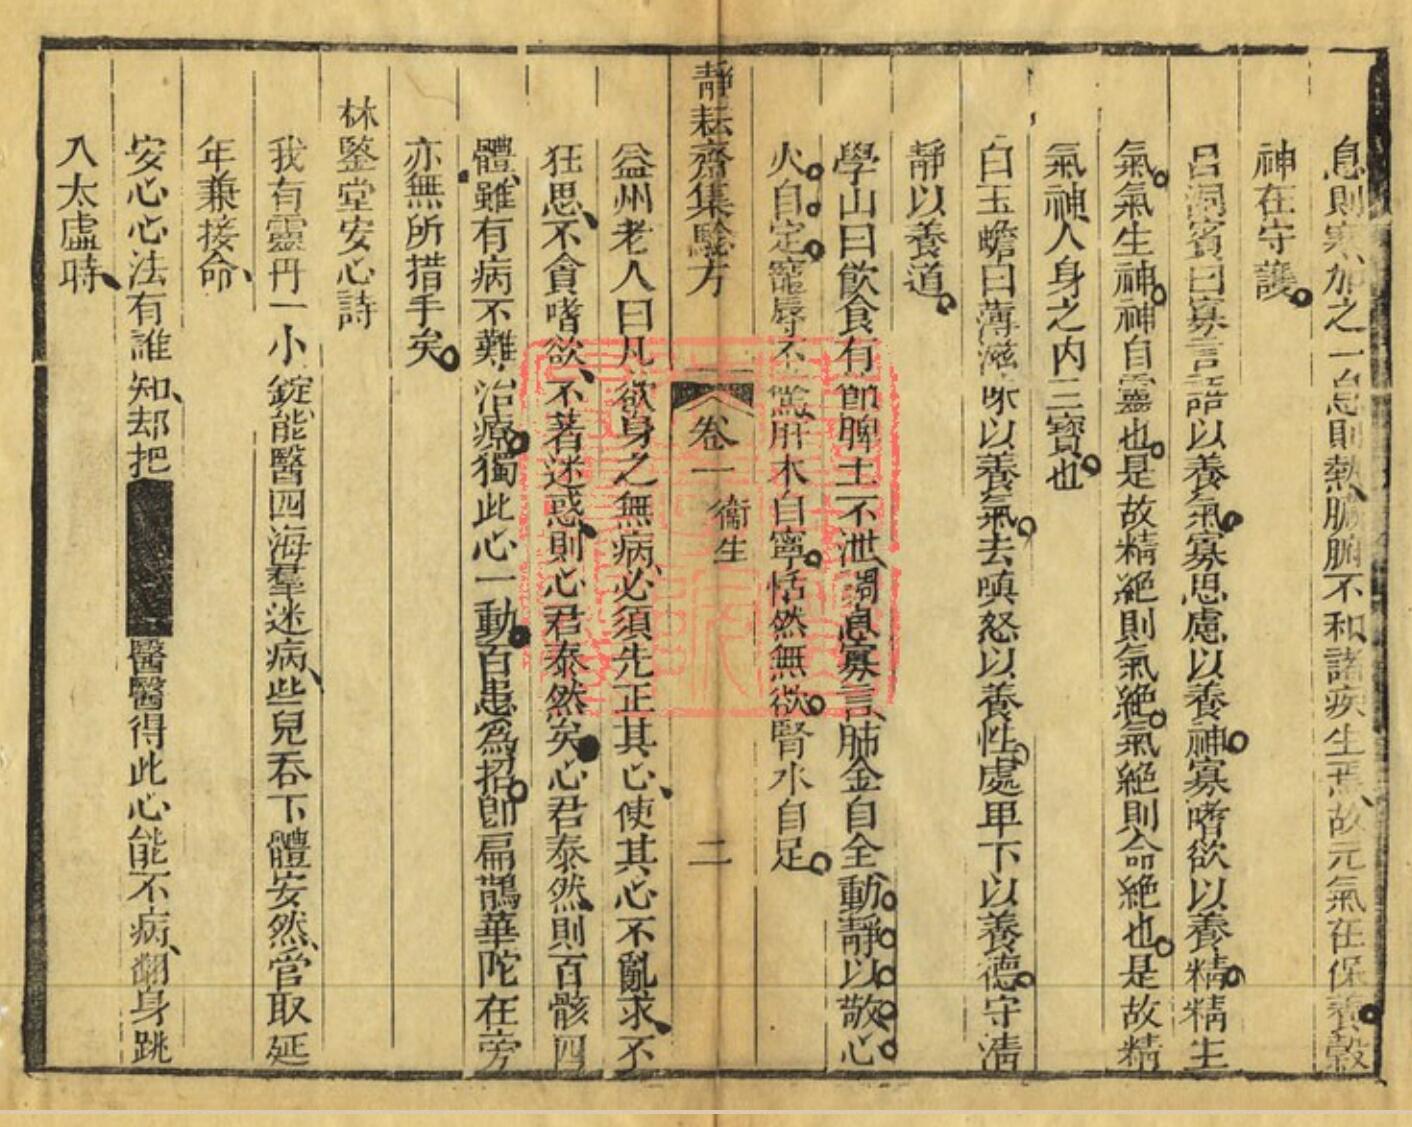 息則寒加之一息則熱臟腑不和諸疾生焉故元氣在保養穀
神在守護
呂洞賓曰寡言語以養氣寡思慮以養神寡嗜欲以養精精生
氣氣生神神自靈也是故精絕則氣絕氣絕則命絕也是故精
氣神人身之內三寶也
白玉蟾曰薄滋味以養氣去嗔怒以養性處卑下以養德守清
靜以養道
學山曰飲食有節脾土不泄調息寡言肺金自全動靜以敬心
火自定寵辱不驚肝木自寧恬然無欲腎水自足
靜耘齋集驗方
卷一 衞生 二
益州老人曰凡欲身之無病必須先正其心使其心不亂求不
狂思不貪嗜欲不著迷惑則心君泰然矣心君泰然則百骸四
體雖有病不難治療獨此心一動百患為招即扁鵲華陀在旁
亦無所措手矣
林鑒堂安心詩
我有靈丹一小錠能醫四海羣迷病些兒吞下體安然管取延
年兼接命
安心心法有誰知却把醫醫得此心能不病翻身跳
入太虛時